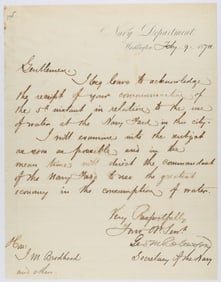 Navy Department
Washington Feby. 9. 187
Gentlemen.
I beg leave to acknowledge
the receipt of your communication of
the 5th instant in relation to the use
of water at the Navy Yard in this city.
I will examine into the subject
as soon as possible and in the
mean time will direct the commandant
of the Navy Yard to use the greatest
economy in the consumption of water.
Very Respectfully
Your Obt Servt
Geo M Robeson
Secretary of the Navy
Hon.
J. M. Brodhead
and others.